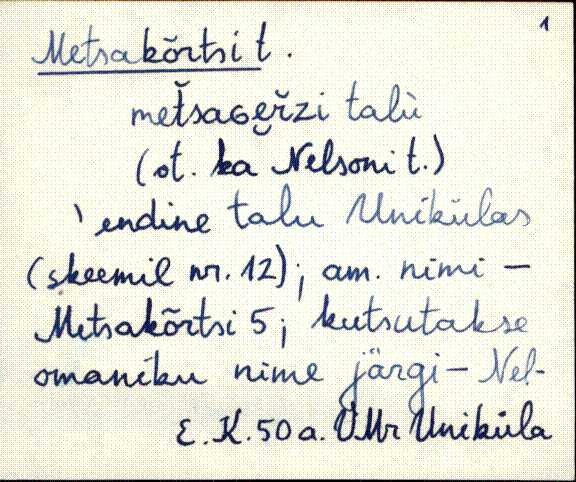 1
Metsakõrtsi t.
metsaGe̮rzi talù
(ot. ka Nelsoni t.)
' endine talu Unikülas
(skeemil nr. 12); am. nimi –
Metsakõrtsi 5; kutsutakse
omaniku nime järgi – Nel-
E. K. 50 a. VMr Uniküla